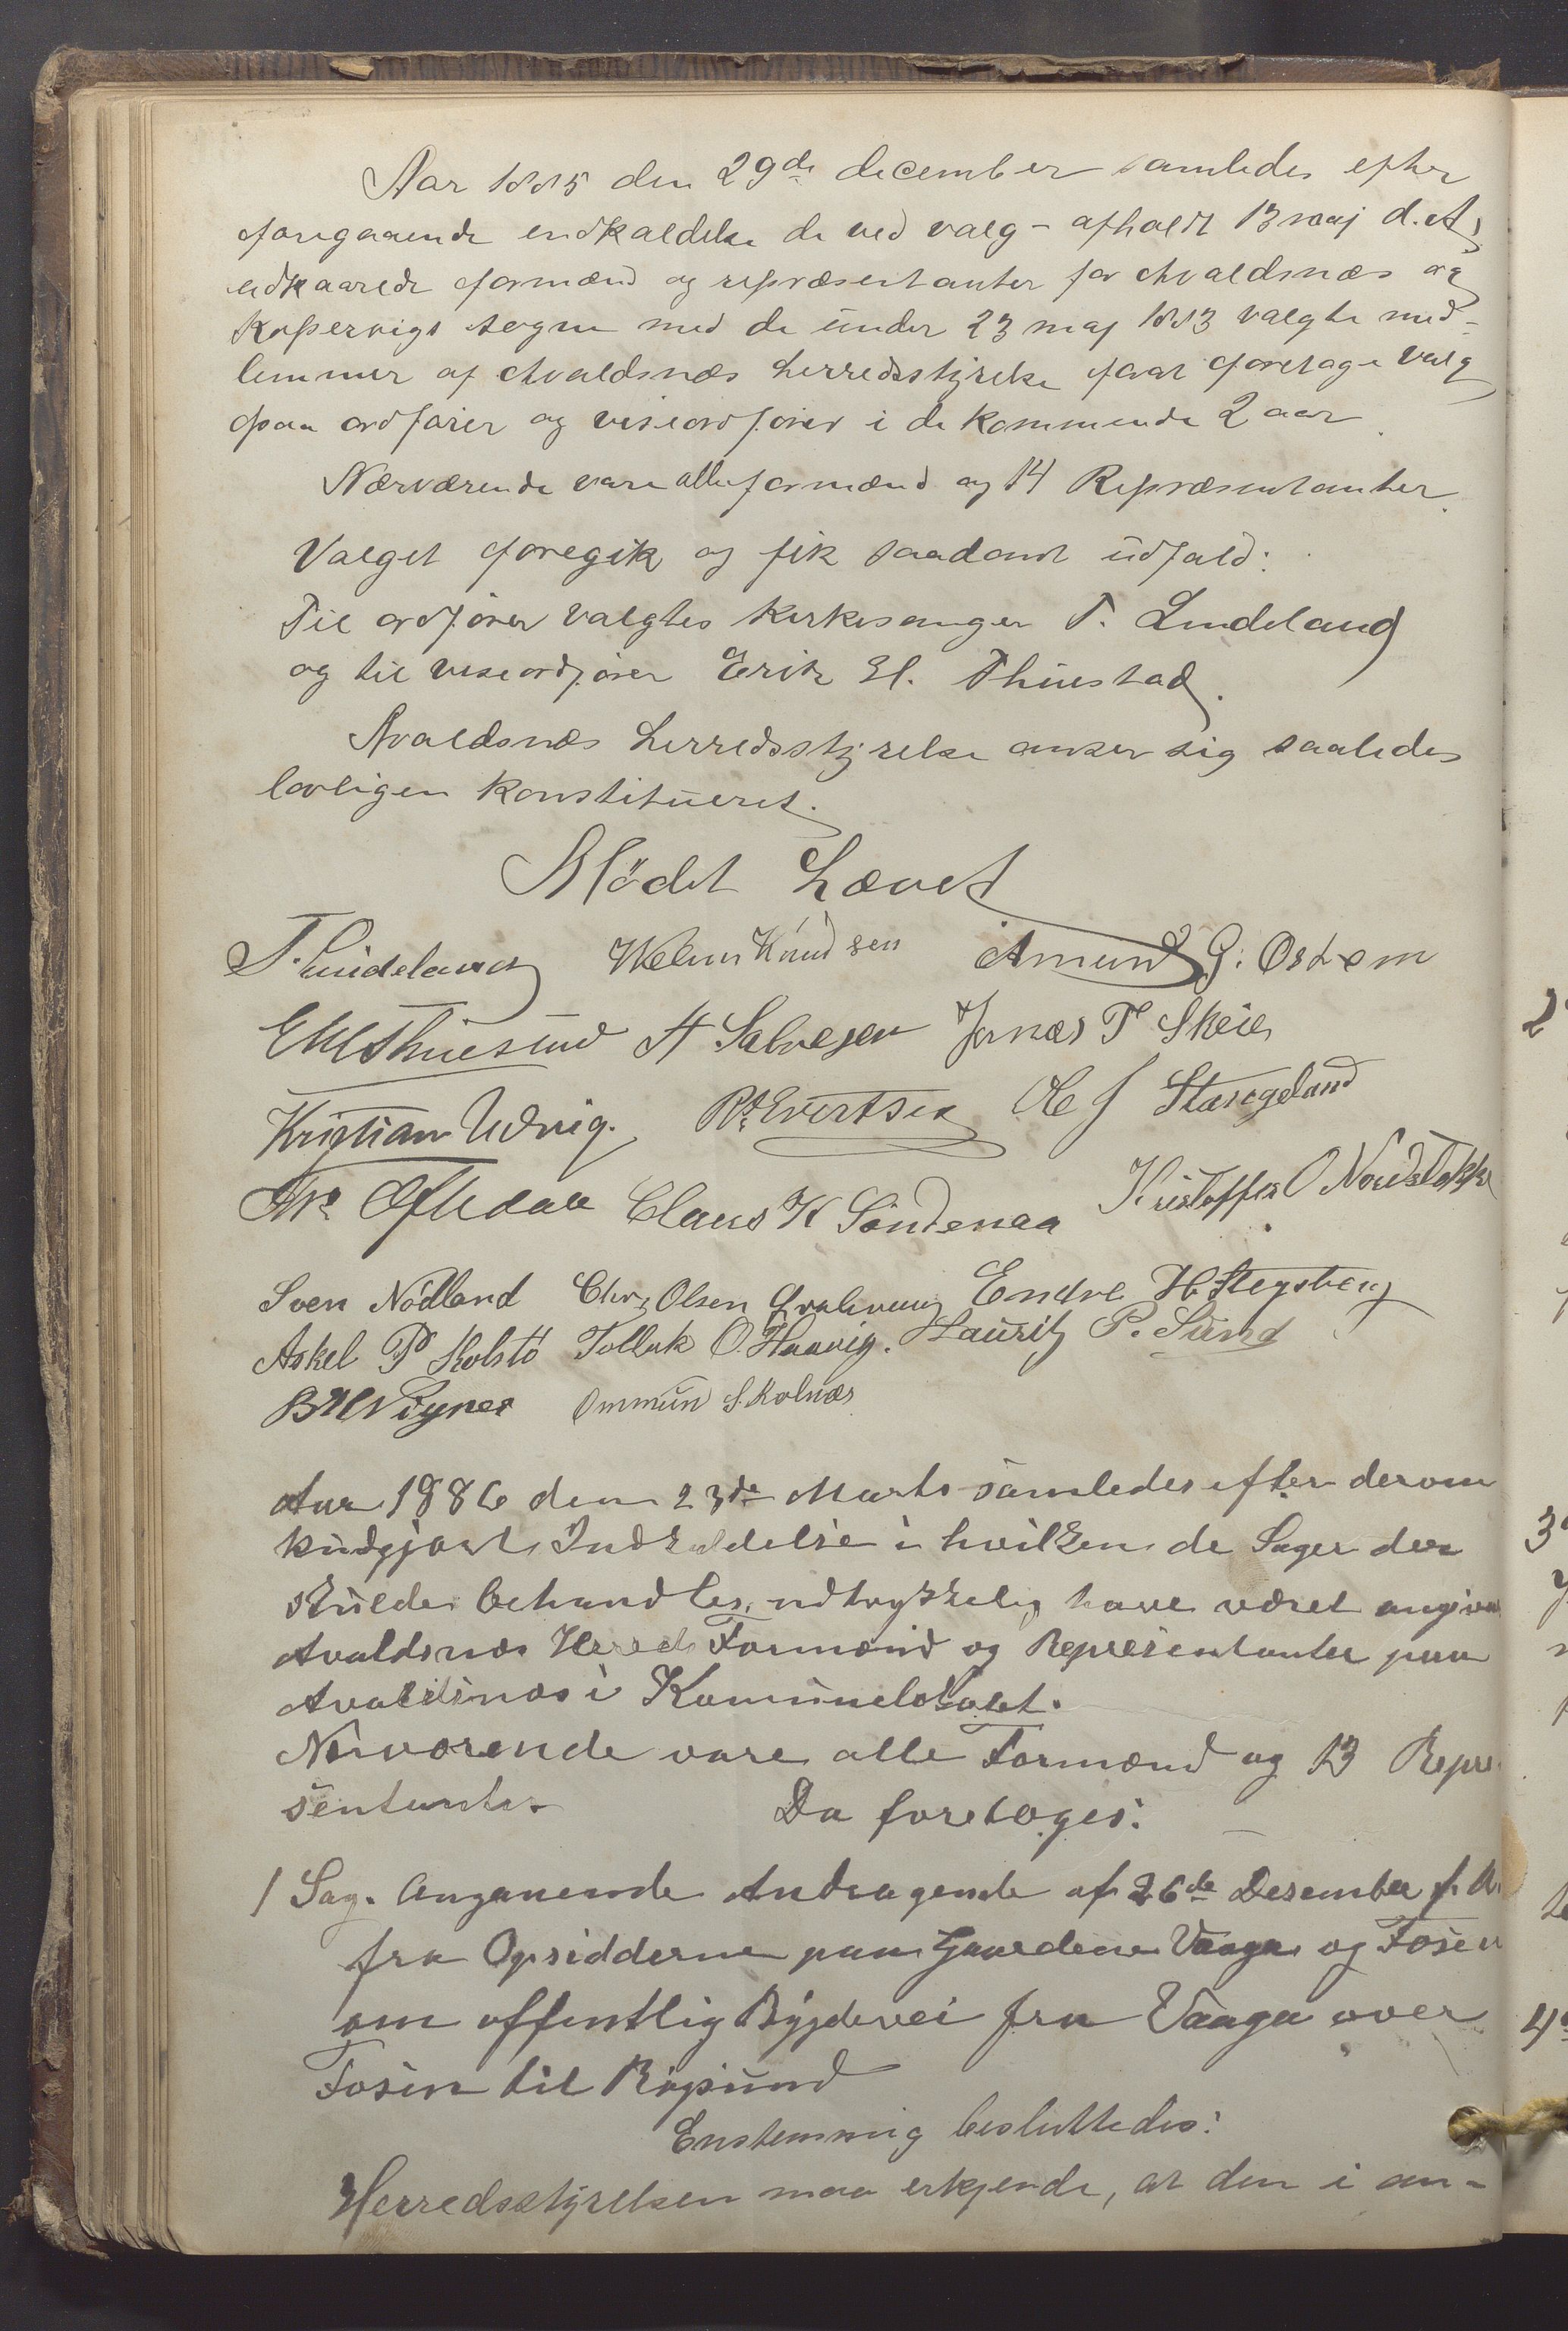 Aar 1885 den 29de december samledes efter
foregaaende indkaldelse de ved valg - afholdt 13 maj d. A.
udkaarede formænd og repræsentanter for Avaldsnæs og
Kopervigs sogne med de under 23 maj 1883 valgte med-
lemmer af Avaldsnæs herredsstyrelse forat foretage valg
paa ordfører og viseordfører i de kommende 2 aar.
Nærværende vare alle formænd og 14 Repræsentanter.
Valget foregik og fik saadant udfald:
Til ordfører valgtes kirkesanger T. Lindeland
og til viseordfører Erik H. Thuestad.
Avaldsnæs herredsstyrelse anser sig saaledes
lovligen konstitueret.
Mødet hævet
T. Lindeland Knudsen Amund G. Østrem
EHThuestad H Salvesen Jonas T Skeie
Kristian Udvig. Evertsen Ole J Stange­land
Oftedal Claus K Söndenaa Kristoffer O Nordstokke
Sven Nödland Chr. Olsen Endre H. Stegsberg
Askel P Kolstö Tollak O. Haavig. Lauritz P. Sund
Ommun S. Kolnæs
Aar 1886 den 23de Marts samledes efter derom
kundgjort Indkaldelse i hvilken de Sager der
skulde behandles udtrykkelig have været angivet
Avaldsnæs Hereds Formænd og Repræsentanter paa
Avaldsnæs i Kommunelokalet.
Nærværende vare alle Formænd og 13 Repræ-
sentanter. Da foretoges:
1 Sag. Angaaende Andragende af 26de Desember f. A.
fra Opsidderne paa Gaardene Vaaga og Fosen
om offentlig Bygdevei fra Vaaga over
Fosen til Røgsund
Enstemmig besluttedes:
Herredsstyrelsen maa erkjende, at den i an-